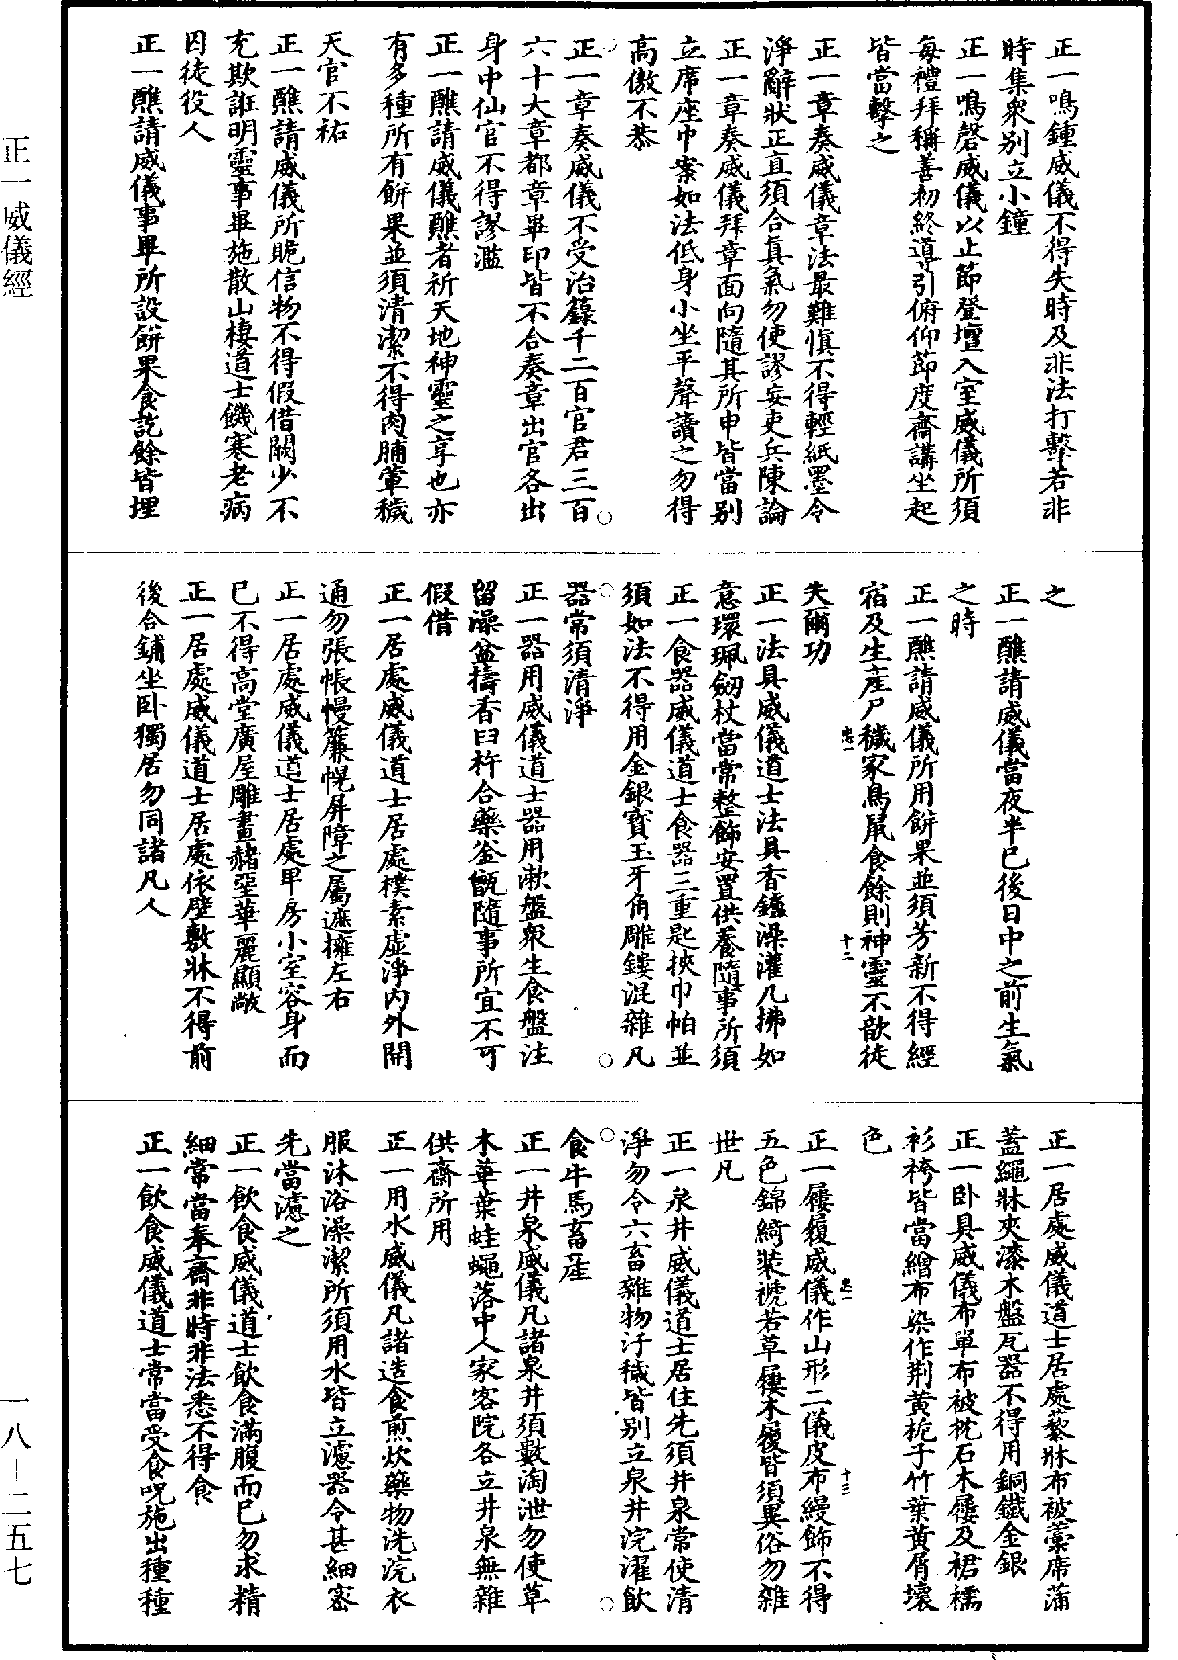 正一鳴鍾威儀不得失時及非法打擊若非
時集衆别立小鐘
正一鳴磬威儀以止節登壇入室威儀所須
每禮拜稱善初終導引俯仰節度齋講坐起
皆當擊之
正一章奏威儀章法最難慎不得輕紙墨令
淨辭狀正直須合真氣勿使謬妄吏兵陳論
正一章奏威儀拜章面向隨其所申皆當别
立席座巾案如法低身小坐平聲讀之勿得
高傲不恭
正一章奏威儀不受治籙千二百官君三百
六十大章都章畢印皆不合奏章出官各出
身中仙官不得謬濫
正一醮請威儀醮者祈天地神靈之享也亦
有多種所有餅果並須清潔不得肉脯葷穢
天官不祐
正一醮請威儀所賝信物不得假借闕少不
充欺誑明靈事畢施散山棲道士饑寒老病
囚徒役人
正一醮請威儀事畢所設餅果食訖餘皆埋
之
正一醮請威儀當夜半已後日中之前生氣
之時
正一醮請威儀所用餅果並須芳新不得經
宿及生產尸穢家鳥鼠食餘則神靈不歆徒
失爾功
正一法具威儀道士法具香鑪澡灌几拂如
意環珮劒杖當常整飾安置供養隨事所須
正一食器威儀道士食器三重匙挾巾帕並
須如法不得用金銀寶玉牙角雕鏤混雜凡
器常須清淨
正一器用威儀道士器用漱盤衆生食盤注
留澡盆擣香臼杵合藥釜甑隨事所宜不可
假借
正一居處威儀道士居處樸素虛淨内外開
通勿張帳幔簾幌屏障之屬遮擁左右
正一居處威儀道士居處卑房小室容身而
已不得高堂廣屋雕畫赭堊華麗顯敞
正一居處威儀道士居處依壁敷牀不得前
後合鋪坐卧獨居勿同諸凡人
正一居處威儀道士居處藜牀布被藁席蒲
蓋繩牀夾漆木盤瓦器不得用銅鐵金銀
正一卧具威儀布單布被枕石木屨及裙襦
衫袴皆當繒布染作荆黄梔子竹葉黄屑壞
色
正一屨履威儀作山形二儀皮布縵飾不得
五色錦綺裝褫若草屨木履皆須異俗勿雜
世凡
正一泉井威儀道士居住先須井泉常使清
淨勿令六畜雜物汙穢皆别立泉井浣濯飲
食牛馬畜產
正一井泉威儀凡諸泉井須數淘泄勿使草
木華葉蛙蠅落中人家客院各立井泉無雜
供齋所用
正一用水威儀凡諸造食煎炊藥物洗浣衣
服沐浴澡潔所須用水皆立漉器令甚細密
先當漉之
正一飲食威儀道士飲食滿腹而已勿求精
細常當奉齋非時非法悉不得食
正一飲食威儀道士常當受食呪施出種種
正一威儀經
一八—二五七